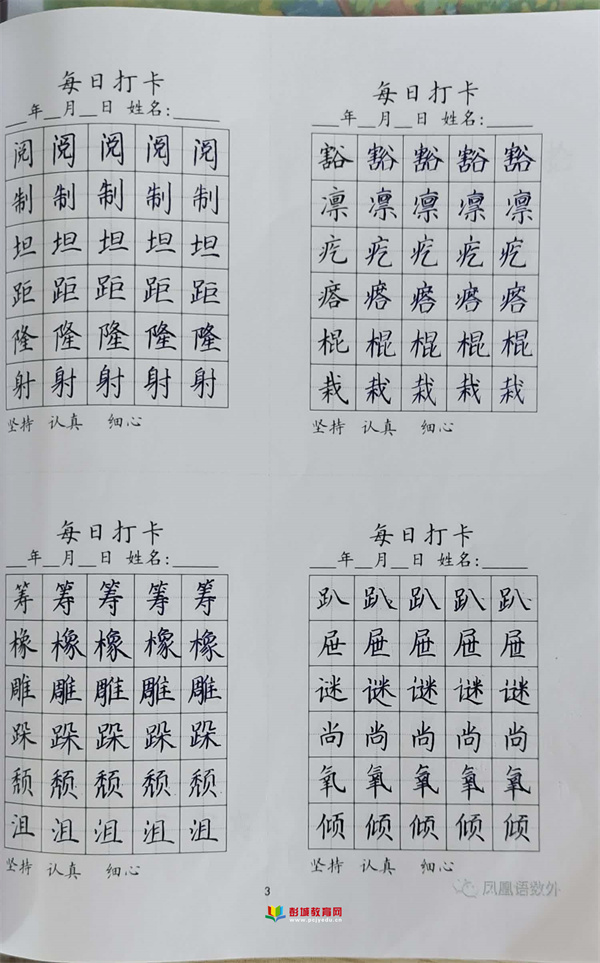 每日打卡
__年__月__日 姓名:_____
阅 阅 阅 阅 阅
制 制 制 制 制
坦 坦 坦 坦 坦
距 距 距 距 距
隆 隆 隆 隆 隆
射 射 射 射 射
坚持 认真 细心
每日打卡
__年__月__日 姓名:_____
豁 豁 豁 豁 豁
凛 凛 凛 凛 凛
疙 疙 疙 疙 疙
瘩 瘩 瘩 瘩 瘩
棍 棍 棍 棍 棍
栽 栽 栽 栽 栽
坚持 认真 细心
每日打卡
__年__月__日 姓名:_____
筹 筹 筹 筹 筹
橡 橡 橡 橡 橡
雕 雕 雕 雕 雕
跺 跺 跺 跺 跺
颓 颓 颓 颓 颓
沮 沮 沮 沮 沮
坚持 认真 细心
每日打卡
__年__月__日 姓名:_____
趴 趴 趴 趴 趴
屉 屉 屉 屉 屉
谜 谜 谜 谜 谜
尚 尚 尚 尚 尚
氧 氧 氧 氧 氧
倾 倾 倾 倾 倾
坚持 认真 细心
3
凤凰语数外
彭城教育网
www.pcjyedu.cn